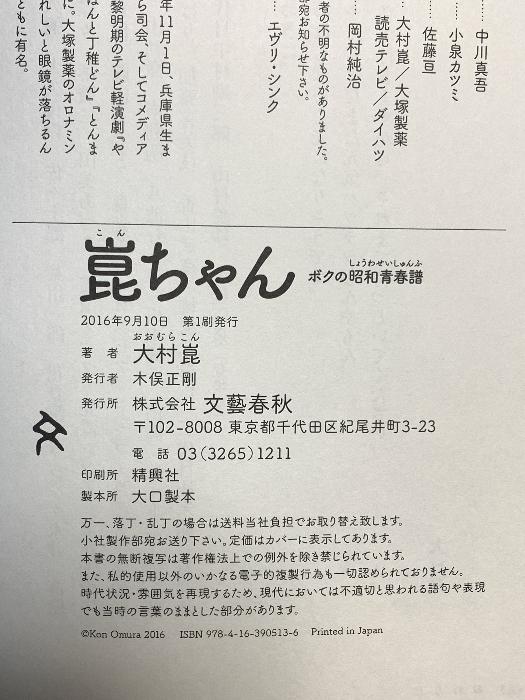 …… 中川真吾
…… 小泉カツミ
…… 佐藤亘
… 大村崑／大塚製薬
読売テレビ／ダイハツ
… 岡村純治
者の不明なものがありました。
部宛お知らせ下さい。
… エヴリ・シンク
年11月1日、兵庫県生ま
ら司会、そしてコメディア
黎明期のテレビ軽演劇『や
はんと丁稚どん』『とんま
に。大塚製薬のオロナミン
れしいと眼鏡が落ちるん
ともに有名。
こん
崑ちゃん
しょうわせいしゅんふ
ボクの昭和青春譜
2016年9月10日 第1刷発行
おおむらこん
著 者 大村崑
発行者 木俣正剛
発行所 株式会社 文藝春秋
〒102-8008 東京都千代田区紀尾井町3-23
電 話 03(3265)1211
印刷所 精興社
製本所 大口製本
万一、落丁・乱丁の場合は送料当社負担でお取り替え致します。
小社製作部宛お送り下さい。定価はカバーに表示してあります。
本書の無断複写は著作権法上での例外を除き禁じられています。
また、私的使用以外のいかなる電子的複製行為も一切認められておりません。
時代状況・雰囲気を再現するため、現代においては不適切と思われる語句や表現
でも当時の言葉のままとした部分があります。
©Kon Omura 2016 ISBN 978-4-16-390513-6 Printed in Japan